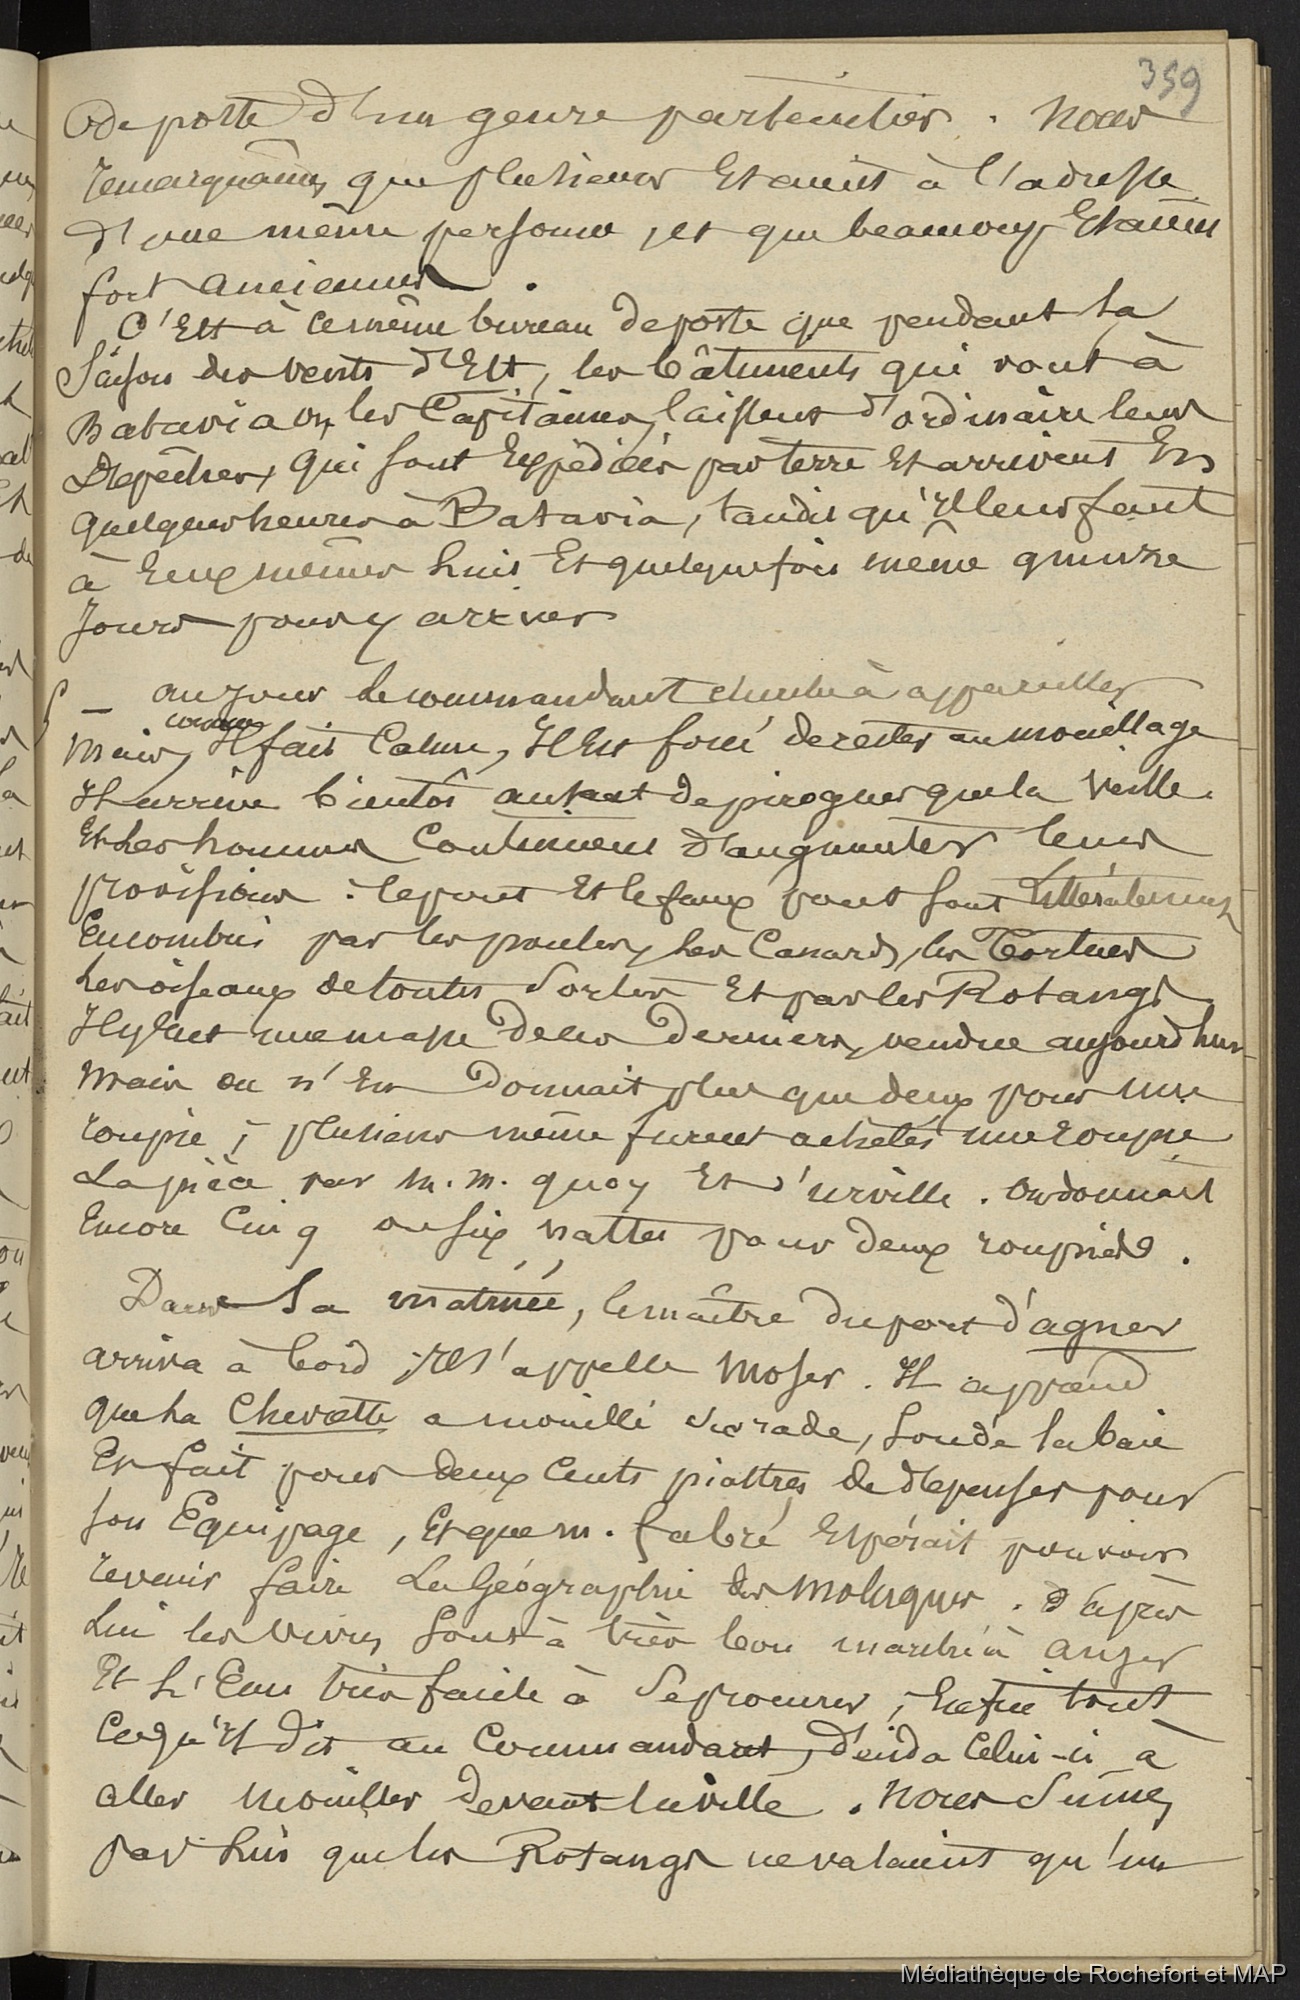 359
de poste d'un genre particulier. Nous
remarquâmes que plusieurs Etaient à l'adresse
d'une même personne, et que beaucoup Etaient
fort anciennes.
C'Est à ce même bureau de poste que pendant la
Saison des vents d'Est, les bâtiments qui vont à
Batavia ou les Capitaines, laissent d'ordinaire leurs
Dépêches, qui sont Expédiées par terre Et arrivent En
quelques heures à Batavia, tandis qu'Il leur faut
à Eux mêmes huit Et quelquefois même quinze
Jours pour y arriver
5 — au jour le commandant cherche à appareiller
comme
Mais, Il fait Calme, Il Est forcé de rester au mouillage
Il arrive bientôt autant de pirogues que la Veille.
Et Les hommes Continuent d'augmenter leurs
provisions : le pont Et le faux pont sont Littéralement
Encombrés par les poules, les Canards, les Tortues
Les oiseaux de toutes Sortes Et par les Rotangs.
Il y Eut une masse de ces Derniers, vendue aujourd'hui
Mais on n'En Donnait plus que deux pour une
roupie ; plusieurs même furent achetés une roupie
La pièce par M. M. quoy Et d'urville. On donnait
Encore Cinq ou six nattes pour deux roupies.
Dans La matinée, le maître du port d'agner
arriva à bord ; Il s'appelle Moser. Il apprend
que La Chevrette a mouillé sur rade, sondé la baie
Et fait pour deux Cents piastres de dépenses pour
son Equipage, Et que M. fabré Espérait pouvoir
revenir faire La Géographie des Moluques. D'après
Lui les vivres Sont à très bon marché à anger
Et L'Eau très facile à Se procurer ; Enfin tout
Ce qu'Il dit au Commandant, décida Celui-ci à
aller mouiller devant la ville. Nous Sûmes
par Lui que les Rotangs ne valaient qu'un
Médiathèque de Rochefort et MAP